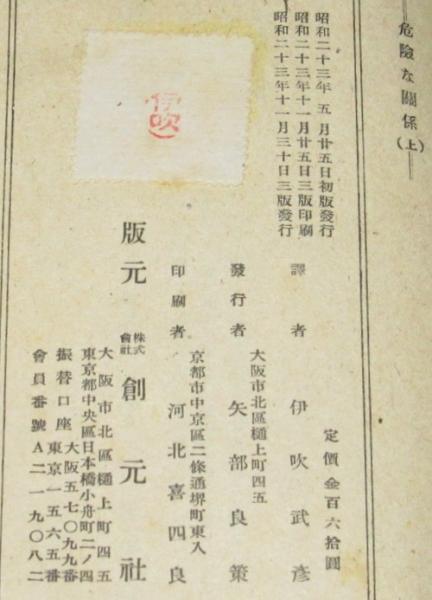 危險な關係(上)
昭和二十三年五月廿五日初版發行
昭和二十三年十一月廿五日三版印刷
昭和二十三年十一月三十日三版發行
定價金百六拾圓
譯者 伊吹武彦
大阪市北區樋上町四五
發行者 矢部良策
京都市中京區二條通堺町東入
印刷者 河北喜四良
版元 株式會社 創元社
大阪市北區樋上町四五
東京都中央區日本橋小舟町二ノ四
振替口座 大阪五七〇九九番
東京一五六五番
會員番號A二一九〇八二
伊吹